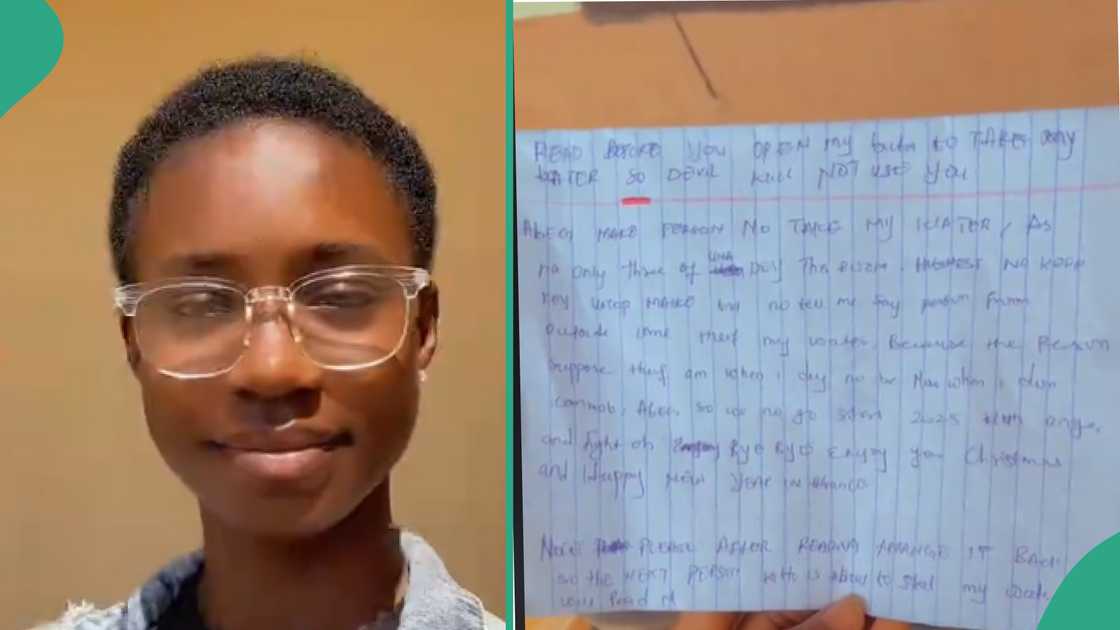 READ BEFORE YOU OPEN my to TAKE any
WATER SO DEVIL NOT USE YOU
Abeg MAKE PERSON NO TAKE MY WATER, As
na only three of una Dey This Room. NO KEEP
key MAKE una no tell me say person from
outside come theif my water. Because the Person
suppose theif am when i dey no be Now when i don
commot. Abeg so we no go start 2025 with anger
and fight oh Bye Bye Enjoy your Christmas
and Happy NEW YEAR IN
Note PLEASE AFTER READING ARRANGE IT BACK
so the NEXT PERSON who is about to steal my water
will Read it